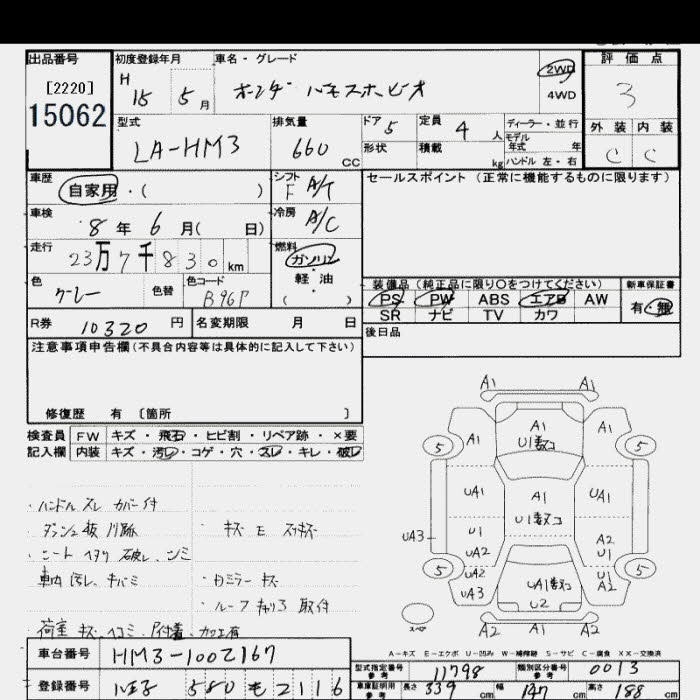 出品番号 初度登録年月 車名・グレード 評価点
[2220] H 15 5月 ホンダ バモスホビオ 2WD 4WD 3
15062
型式 排気量 ドア 5 定員 4人 ディーラー・並行 外装 内装
LA-HM3 660 CC 形状 積載 kg モデル年式 年 ハンドル 左・右 C C
車歴 シフト セールスポイント (正常に機能するものに限ります)
自家用・( ) F A/T
車検 冷房
8年 6月( 日) A/C
走行 燃料
23万7千830km ガソリン
色 色替 色コード 軽油
グレー B96P ( )
装備品 (純正品に限り○をつけてください) 新車保証書
PS PW ABS エアB AW 有・無
SR ナビ TV カワ
R券 10320円 名変期限 月 日 後日品
注意事項申告欄 (不具合内容等は具体的に記入して下さい)
修復歴 有 〔箇所 〕
検査員 FW キズ・飛石・ヒビ割・リペア跡・×要
記入欄 内装 キズ・汚レ・コゲ・穴・スレ・キレ・破レ
・ハンドル スレ カバー付
・シート ヘタリ 破レ、シミ
車内 汚レ、キバミ
・ルーフ キャリア 取付
荷室 キズ、ヘコミ
A1 A1
A1 A1 A1
5 U1数コ 5
UA1 A1 UA1
U1数コ
UA3 U1 A2
UA2 U1
5 UA2 U1 5
UA3 UA1数コ A2
U2
スペア A2 A1 A2
A-キズ E-エクボ U-凹み W-補修跡 S-サビ C-腐食 XX-交換済
車台番号 HM3-1002167
型式指定番号 参考 11798 類別区分番号 参考 0013
登録番号 580 も 2116
車庫証明用 参考 長さ 339 cm 幅 147 cm 高さ 188 cm